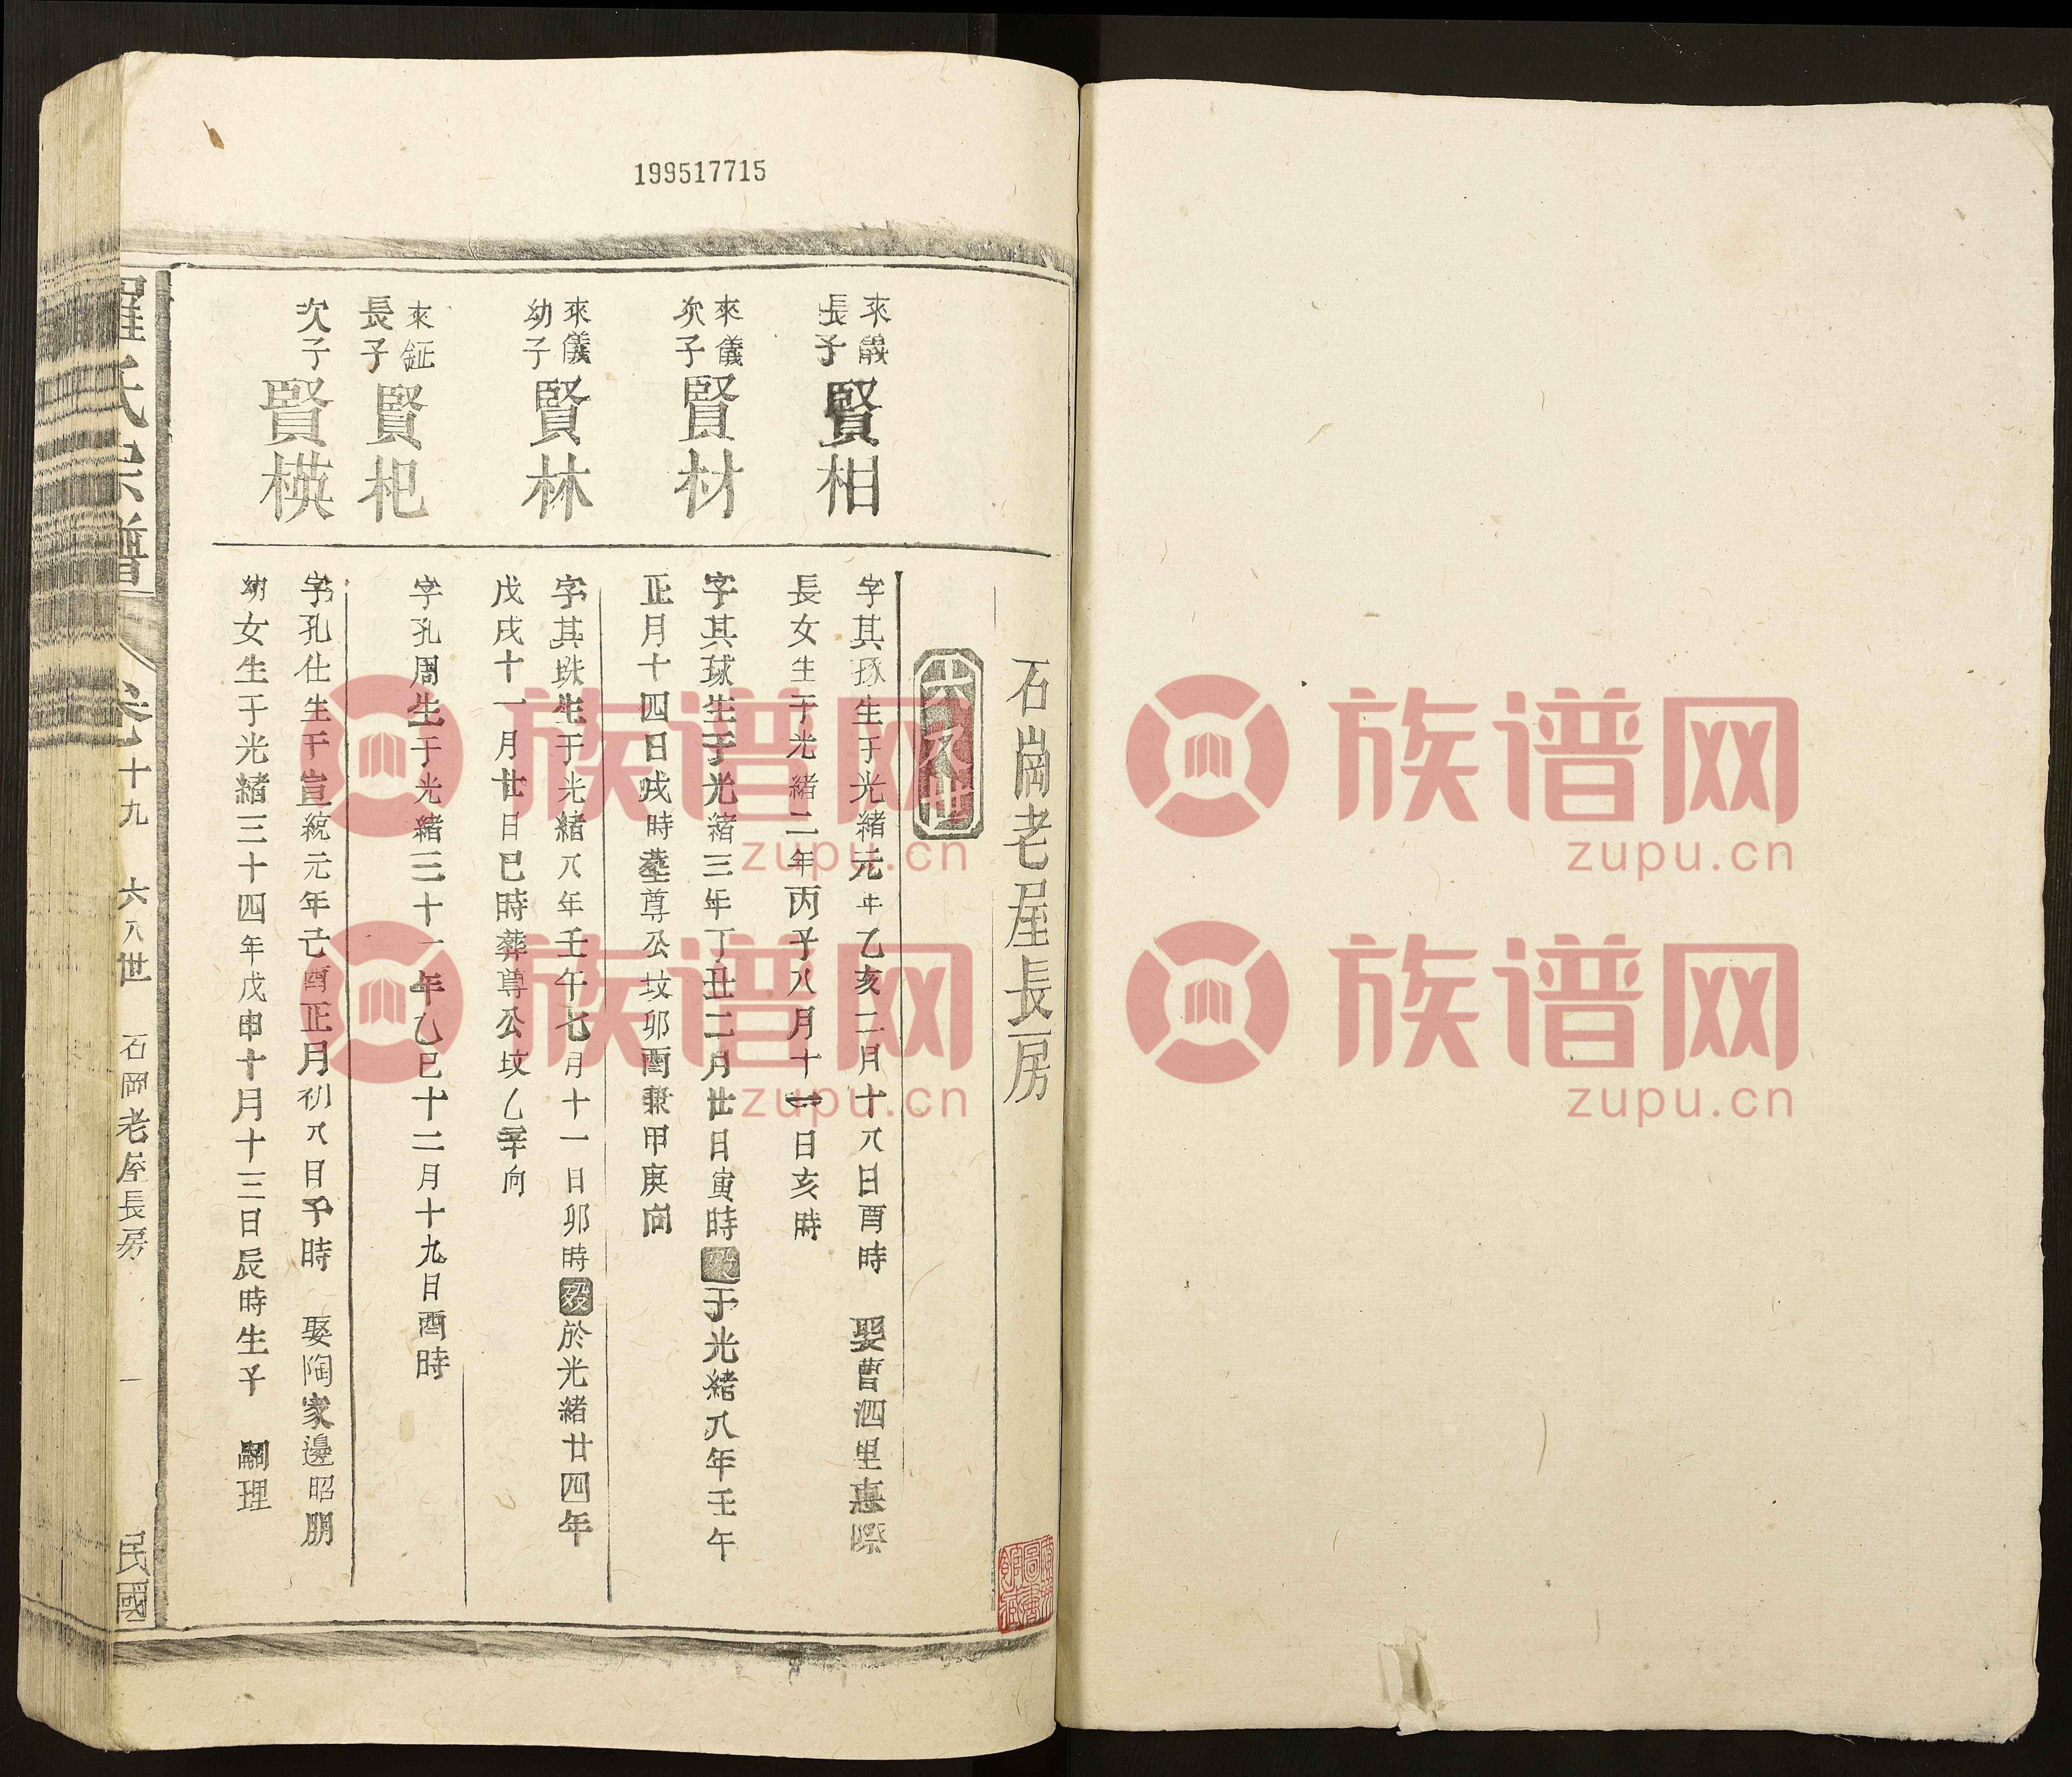 199517715
石崗老屋長房
六八世
來儀
長子
賢柏
字其琢生于光緒元年乙亥二月十八日酉時 娶曹泗里惠際
長女生于光緒二年丙子八月十一日亥時
來儀
次子
賢材
字其球生于光緒三年丁丑二月廿日寅時歿于光緒八年壬午
正月十四日戌時葬尊公坟卯酉兼甲庚向
來儀
幼子
賢林
字其珠生于光緒八年壬午七月十一日卯時歿於光緒廿四年
戊戌十一月廿日巳時葬尊公坟乙辛向
來鉦
長子
賢杞
字孔周生于光緒三十一年乙巳十二月十九日酉時
次子
賢横
字孔仕生于宣統元年己酉正月初八日子時 娶陶家邊昭朋
幼女生于光緒三十四年戊申十月十三日辰時生子 嗣理
羅氏宗譜
卷十九 六八世 石岡老屋長房 一 民國
族谱网
zupu.cn
族谱网
zupu.cn
族谱网
zupu.cn
族谱网
zupu.cn